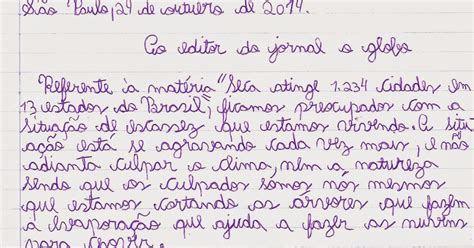 São Paulo, 29 de outubro de 2014.
Ao editor do jornal o globo
Referente à matéria "Seca atinge 1.234 cidades em
13 estados do Brasil", ficamos preocupados com a
situação de escassez que estamos vivendo. A situ
ação está se agravando cada vez mais, e não
adianta culpar o clima, nem a natureza
sendo que os culpados somos nós mesmos
que estamos cortando as árvores que fazem
a evaporação que ajuda a fazer as nuvens
para chover.